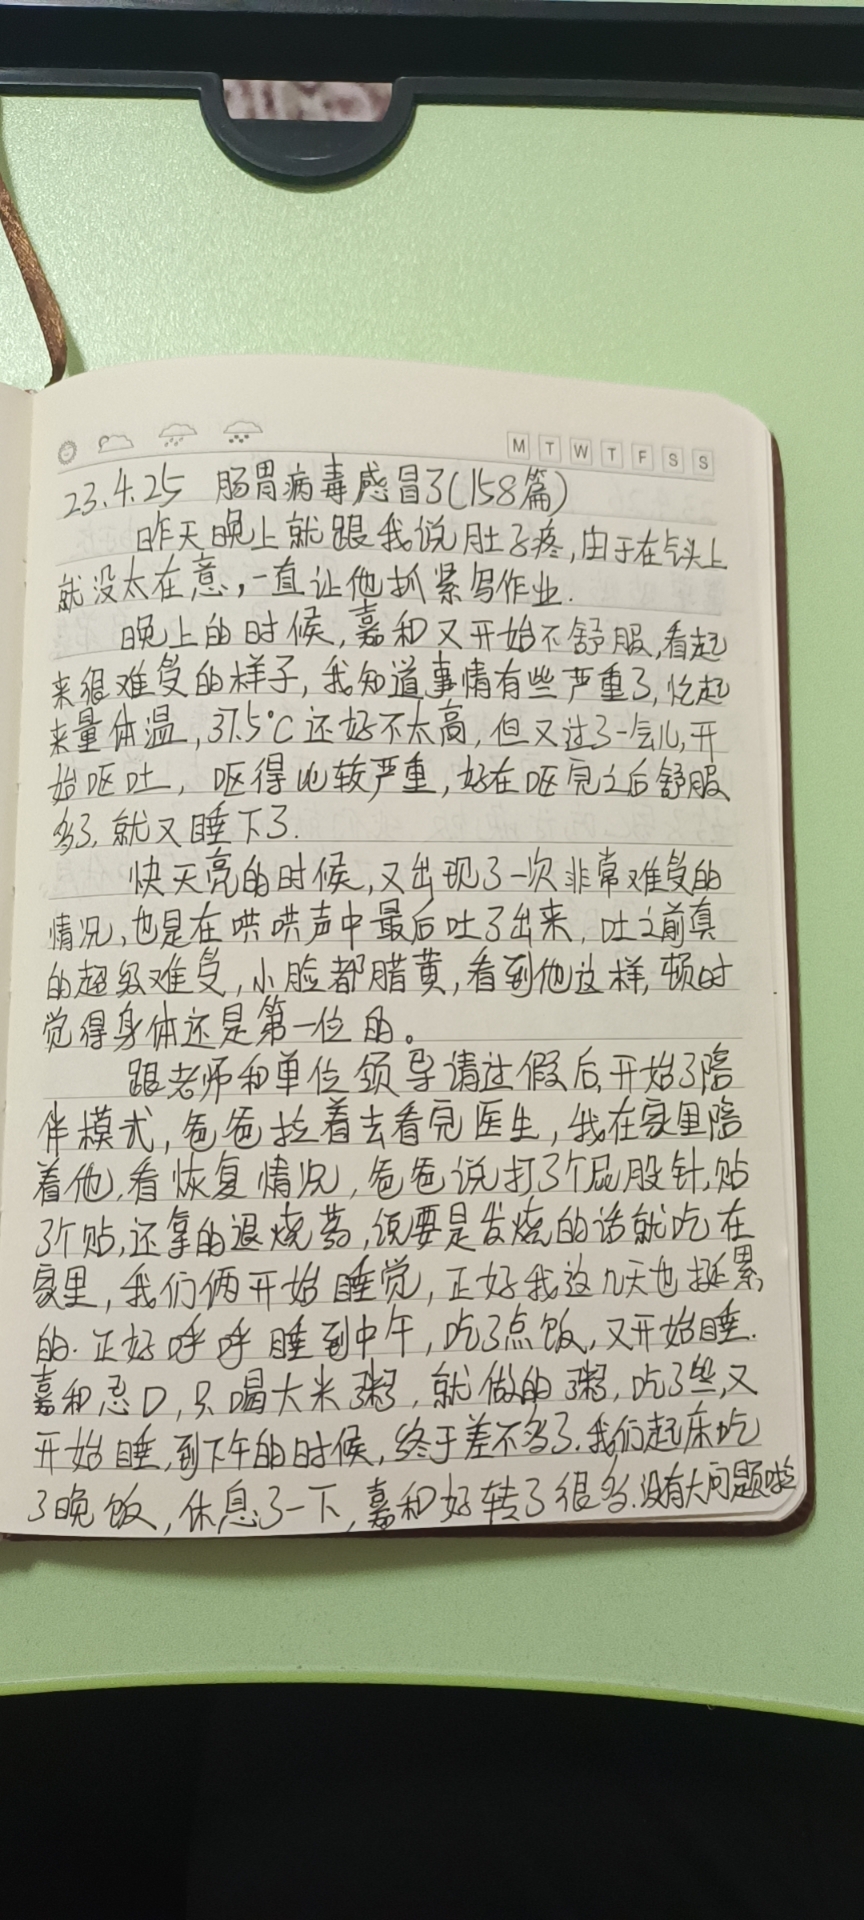 M T W T F S S
23.4.25 肠胃病毒感冒了(158篇)
昨天晚上就跟我说肚子疼,由于在气头上
就没太在意,一直让他抓紧写作业.
晚上的时候,嘉和又开始不舒服,看起
来很难受的样子,我知道事情有些严重了,忙起
来量体温,37.5°C还好不太高,但又过了一会儿,开
始呕吐,呕得比较严重,好在呕完之后舒服
多了,就又睡下了.
快天亮的时候,又出现了一次非常难受的
情况,也是在哄哄声中最后吐了出来,吐之前真
的超级难受,小脸都腊黄,看到他这样,顿时
觉得身体还是第一位的。
跟老师和单位领导请过假后,开始了陪
伴模式,爸爸拉着去看完医生,我在家里陪
着他,看恢复情况,爸爸说打了个屁股针,贴
了个贴,还拿的退烧药,说要是发烧的话就吃在
家里,我们俩开始睡觉,正好我这几天也挺累
的.正好呼呼睡到中午,吃了点饭,又开始睡.
嘉和忍口,只喝大米粥,就做的粥,吃了些,又
开始睡,到下午的时候,终于差不多了.我们起床吃
了晚饭,休息了一下,嘉和好转了很多.没有大问题啦